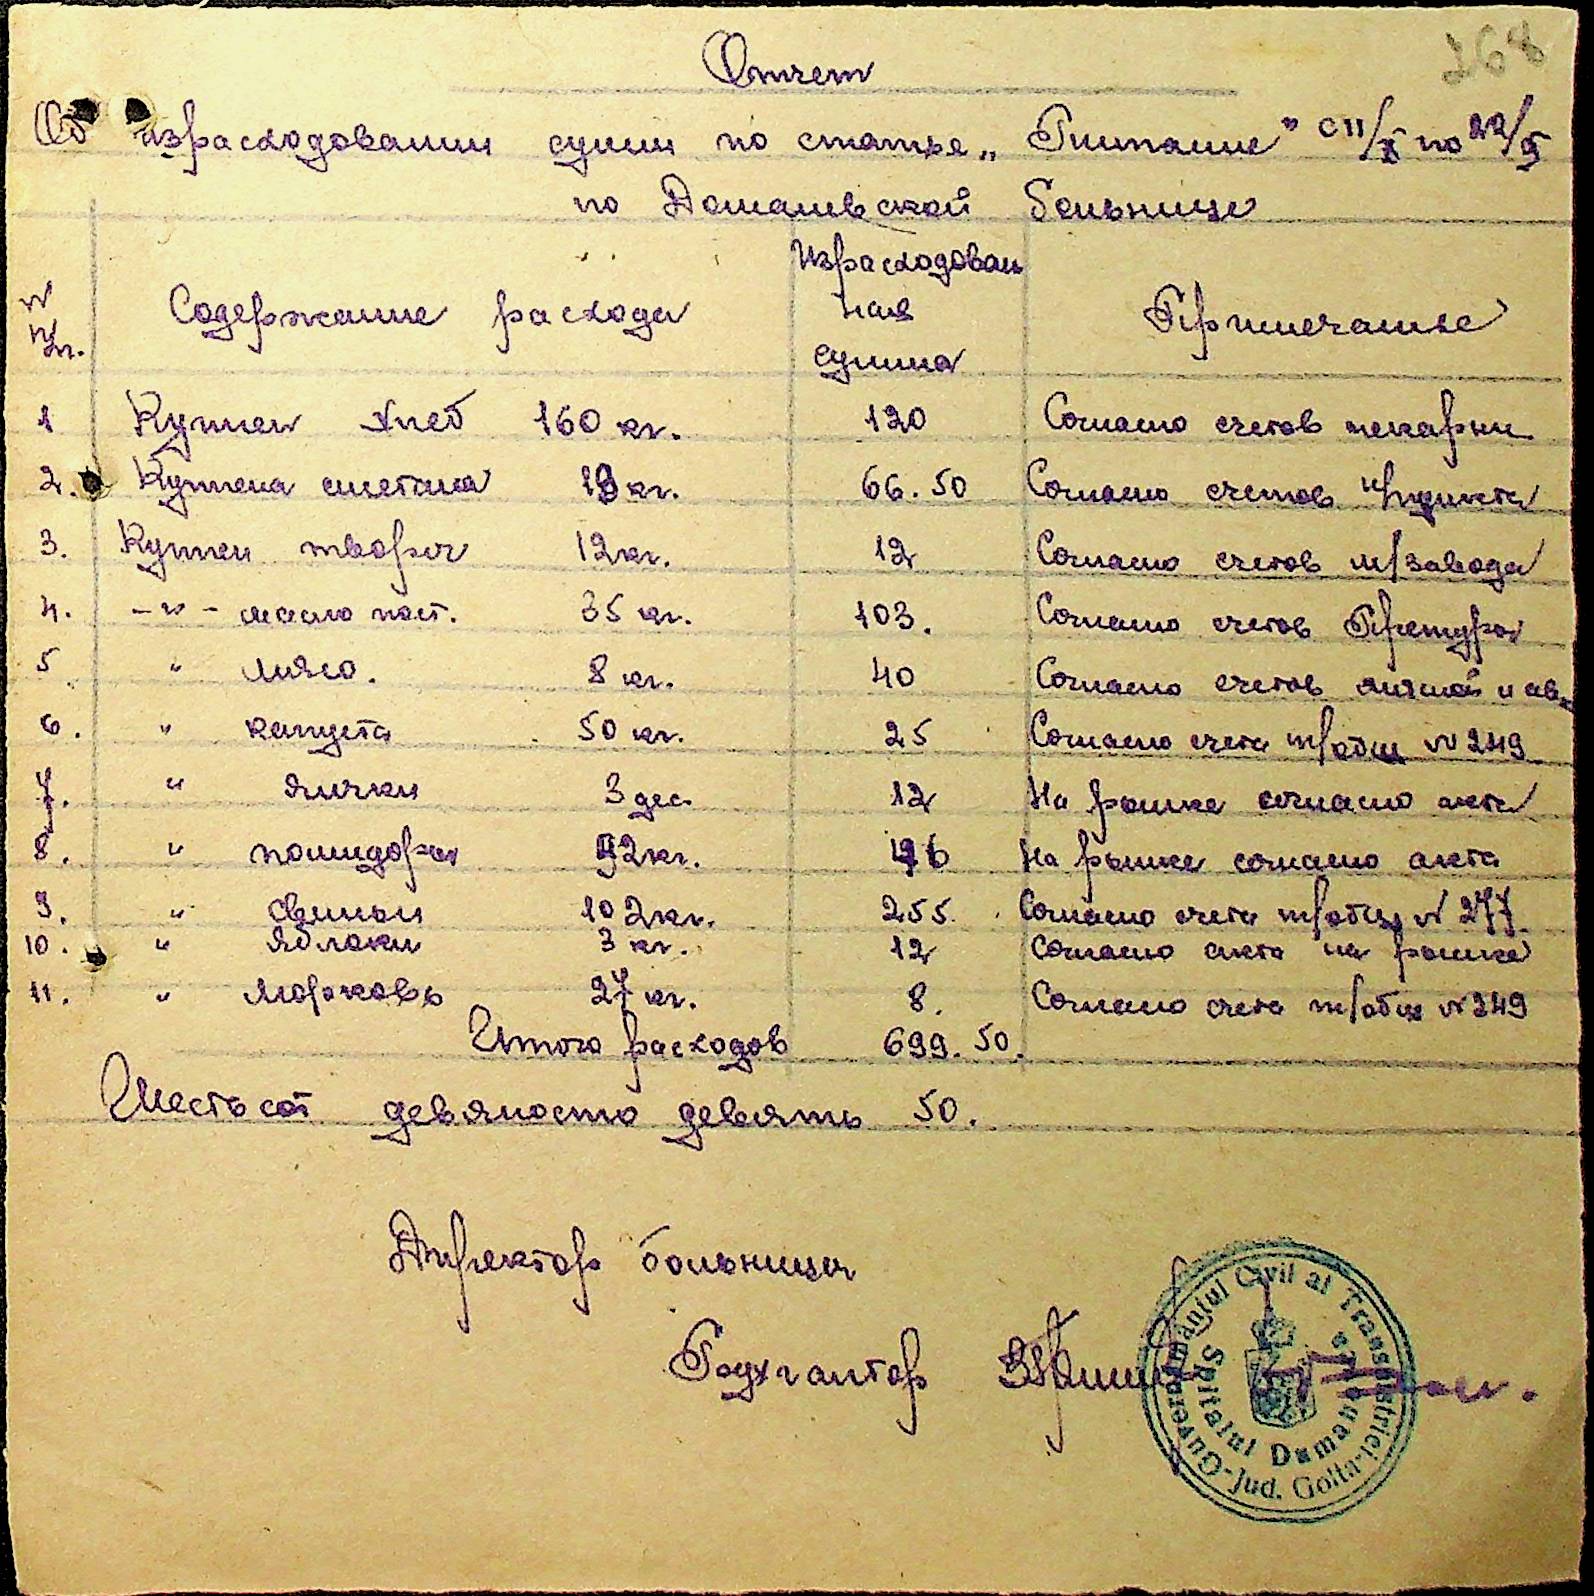 268
Отчет
Об израсходовании сумм по статье „Питание" с 11/X по 22/X
по Доманевской больнице
N п/п.
Содержание расхода
Израсходован
ная
сумма
Примечанье
1 Куплен хлеб 160 кг. 120 Согласно счетов пекарни
2. Куплена сметана 19 кг. 66.50 Согласно счетов
3. Куплен творог 12 кг. 12 Согласно счетов м/завода
4. –"– масло пост. 35 кг. 103. Согласно счетов Претуры
5 " мясо. 8 кг. 40 Согласно счетов мясной лав.
6. " капуста 50 кг. 25 Согласно счета т/общ N 249
7. " яички 3 дес. 12 На рынке согласно акта
8. " помидоры 92 кг. 46 На рынке согласно акта
9. " свиньи 102 кг. 255. Согласно счета т/общ N 277.
10. " яблоки 3 кг. 12 Согласно акта на рынке
11. " Морковь 27 кг. 8. Согласно счета т/общ N 249
Итого расходов 699.50.
Шестьсот девяносто девять 50.
Директор больницы
Бухгалтор
Guvernământul Civil al Transnistriei-Jud. Golta-
Spitalul Dumanovca